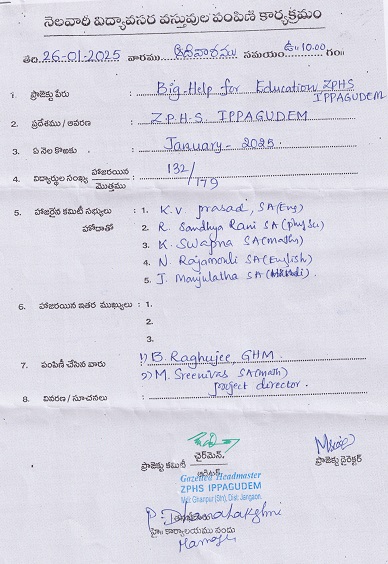 నెలవారీ విద్యావసర వస్తువుల పంపిణి కార్యక్రమం
తేది. 26-01-2025 వారము.... ఆదివారము సమయం. ఉ॥ 10.00 గం॥
1. ప్రాజెక్టు పేరు : Big-Help for Education, ZPHS
IPPAGUDEM
2. ప్రదేశము / ఆవరణ : Z.P.H.S IPPAGUDEM
3. ఏ నెల కొఱకు : January - 2025.
4. విద్యార్థుల సంఖ్య హాజరయిన : 132/
మొత్తము 179
5. హాజరైన కమిటీ సభ్యులు : 1. K.V. prasad, SA (Eng)
హోదాతో 2. R. Sandhya Rani SA (phy Sc)
3. K. Swapna SA (maths)
4. N. Rajamouli SA (English)
5. J. Manjulatha SA (Hindi).
6. హాజరయిన ఇతర ముఖ్యులు : 1.
2.
3.
7. పంపిణీ చేసిన వారు : 1) B. Raghujee, GHM
2) M. Sreenivas SA (math)
project director.
8. వివరణ / సూచనలు :
ప్రాజెక్టు కమిటీ ఛైర్మెన్,
ఆడిటర్
ప్రాజెక్టు డైరెక్టర్
Gazetted Headmaster
ZPHS IPPAGUDEM
Mdl: Ghanpur (Stn), Dist: Jangaon.
P. Dhanalakshmi
హై॥ కార్యాలయము నందు